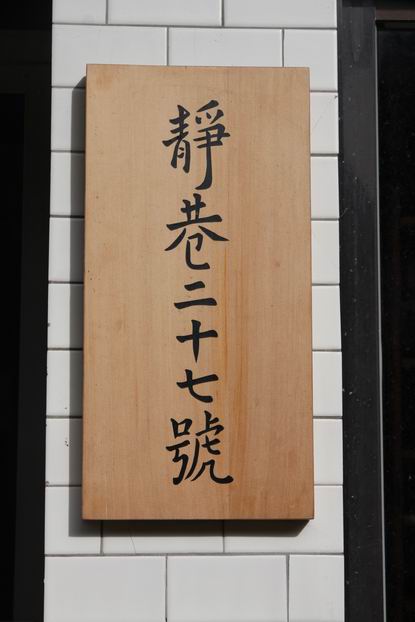 靜巷二十七號